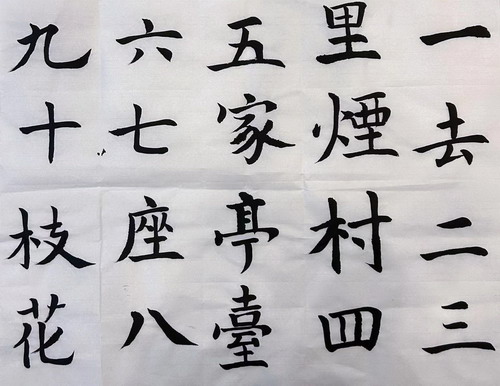 一去二三
里煙村四
五家亭臺
六七座八
九十枝花